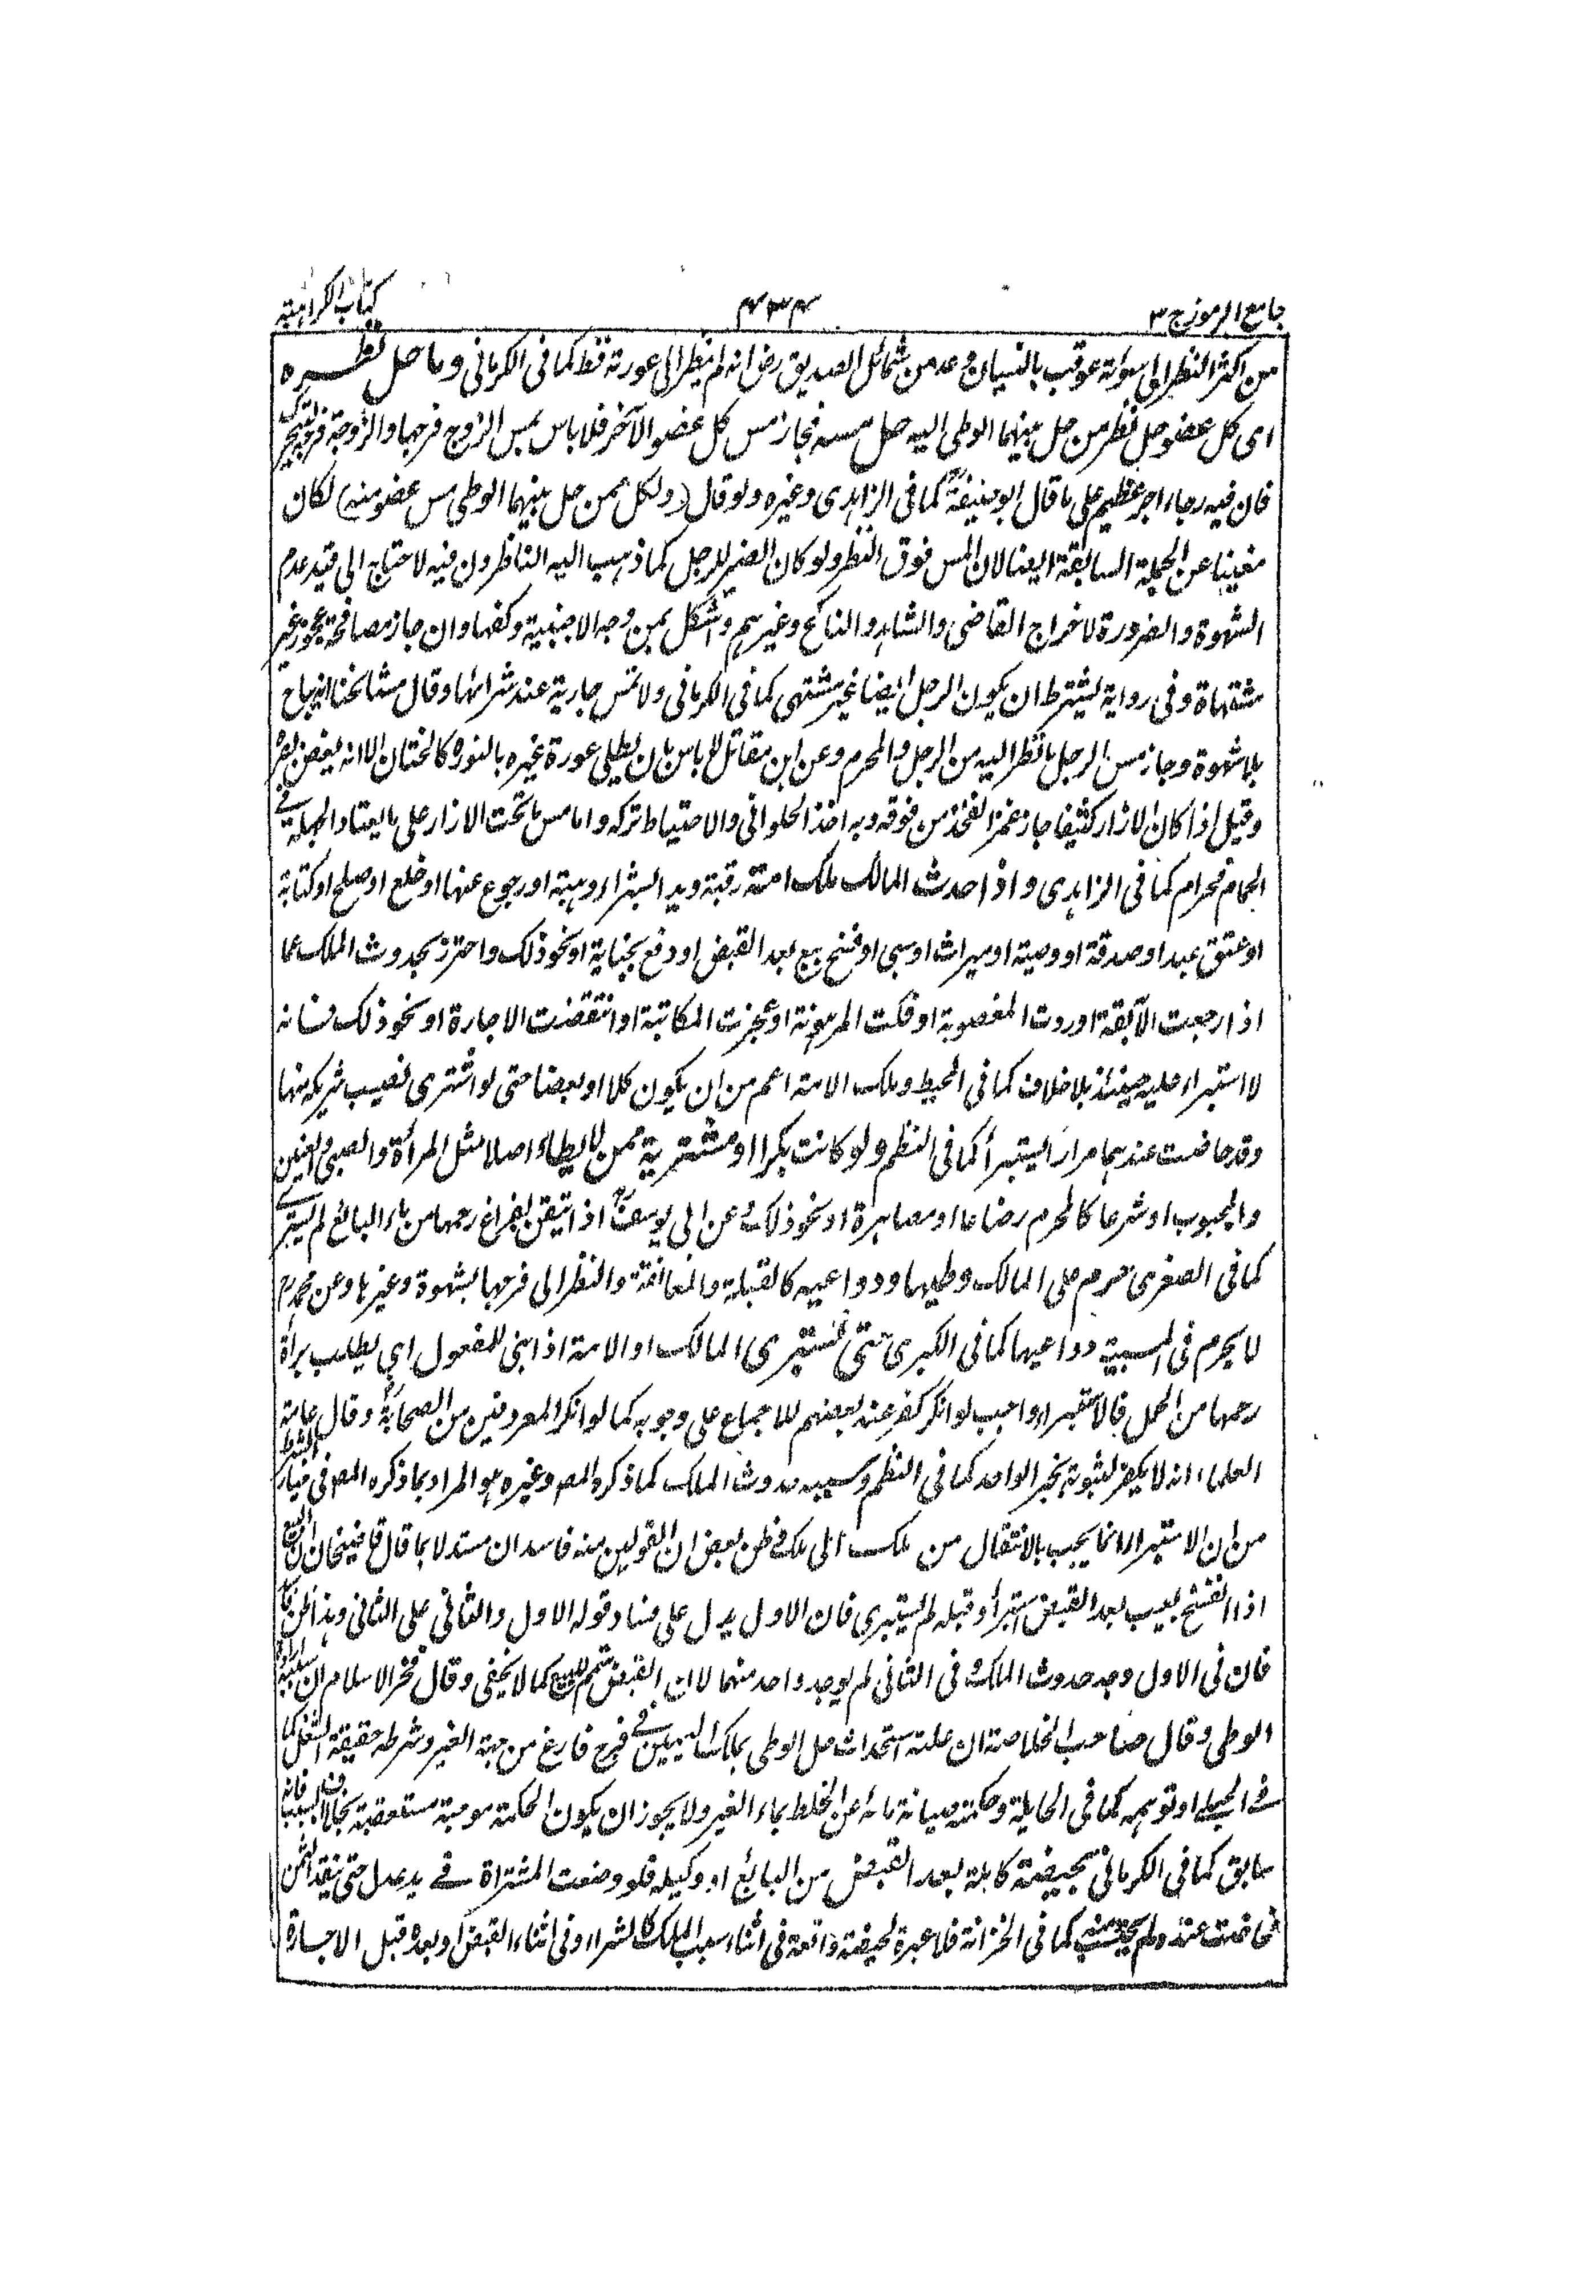 جامع الرموز ج ٣
٤٣٤
كتاب الكراهية
من اكثر النظر الى سوأته عوقب بالنسيان وعد من شمائل الصديق رض انه لم ينظر الى عورته قط كما فى الكرمانى وما حل نظره
اى كل عضو حل نظر من حل بينهما الوطى اليه حل مسه فجاز مس كل عضو الآخر فلا باس بمس الزوج فرجها والزوجة فرجه ليتحرك
فان فيه رجاء اجر عظيم على ما قال ابو حنيفة كما فى الزاهدى وغيره ولو قال (ولكل ممن حل بينهما الوطى مس عضو منه) لكان
مغنيا عن الجملة السابقة ايضا لان المس فوق النظر ولو كان الضمير للرجل كما ذهب اليه الناظرون فيه لاحتاج الى قيد عدم
الشهوة والضرورة لاخراج القاضى والشاهد والناكح وغيرهم واشكل بمس وجه الاجنبية وكفها وان جاز مصافحة عجوز غير
مشتهاة وفى رواية يشترط ان يكون الرجل ايضا غير مشتهى كما فى الكرمانى ولا تمس جارية عند شرائها وقال مشائخنا انه يباح
بلا شهوة وجاز مس الرجل ما نظر اليه من الرجل والمحرم وعن ابن مقاتل لا باس بان يطلى عورة غيره بالنوره كالختان الا انه يغض بصره
وقيل اذا كان الازار كثيفا جاز غمز الفخذ من فوقه وبه اخذ الحلوانى والاحتياط تركه واما مس ما تحت الازار على ما يعتاد الجهلة فے
الحمام فحرام كما فى الزاهدى واذا حدث المالك ملك امة رقبة ويدا بشراء وهبة او رجوع عنها او خلع او صلح او كتابة
او عتق عبد او صدقة او وصية او ميراث او سبى او فسخ بيع بعد القبض او دفع بجناية او نحو ذلك واحترز بحدوث الملك عما
اذا رجعت الآبقة او ردت المغصوبة او فكت المرهونة او عجزت المكاتبة او انتقضت الاجارة او نحو ذلك فانه
لا استبراء عليه حينئذ بلا خلاف كما فى المحيط وملك الامة اعم من ان يكون كلا او بعضا حتى لو اشترى نصيب شريكه منها
وقد حاضت عندهما مرارا يستبرأ كما فى النظم ولو كانت بكرا او مشترية ممن لا يطاء اصلا مثل المرأة والصبى والعنين
والمجبوب او شرعا كالمحرم رضاعا او مصاهرة او نحو ذلك وعن ابى يوسف اذا تيقن بفراغ رحمها من ماء البائع لم يستبرئ
كما فى الصغرى حرم على المالك وطيها ودواعيه كالقبلة والمعانقة والنظر الى فرجها بشهوة وغيرها وعن محمد رح
لا يحرم فى المسبية دواعيها كما فى الكبرى حتى يستبرى المالك او الامة اذا بنى للمفعول اى يطلب برأة
رحمها من الحمل فالاستبراء واجب لو انكر كفر عند بعضهم للاجماع على وجوبه كما لو انكر المعروفين من الصحابة وقال عامة
العلماء انه لا يكفر لثبوته بخبر الواحد كما فى النظم وسببه حدوث الملك كما ذكره المص وغيره هو المراد بما ذكره المص فى خيار الشرط
من ان الاستبراء انما يجب بالانتقال من ملك الى ملك فظن بعض ان القولين منه فاسدان مستدلا بما قال قاضيخان ان البيع
اذا انفسخ بعيب بعد القبض استبرأ وقبله لم يستبرى فان الاول يدل على فساد قوله الاول والثانى على الثانى وهذا ظن
فان فى الاول وجد حدوث الملك وفى الثانى لم يوجد واحد منهما لان القبض متمم للبيع كما لا يخفى وقال فخر الاسلام ان سببه ارادة
الوطى وقال صاحب الخلاصة ان علته استحداث حل الوطى بملك اليمين فے فرج فارغ من جهة الغير وشرطه حقيقة الشغل كما
فے الحبلے او توهمه كما فى الحايلة وحكمته صيانة مائه عن الخلط بماء الغير ولا يجوز ان يكون الحكمة موجبة مستعقبة بخلاف السبب فانه
سابق كما فى الكرمانى بحيضة كاملة بعد القبض من البائع او وكيله فلو وضعت المشتراة فے يد عدل حتى ينقد الثمن
فحاضت عنده لم يحتسب كما فى الخزانة فلا عبرة لحيضة واقعة فى اثناء سبب الملك كالشراء وفى اثناء القبض او بعده قبل الاجازة